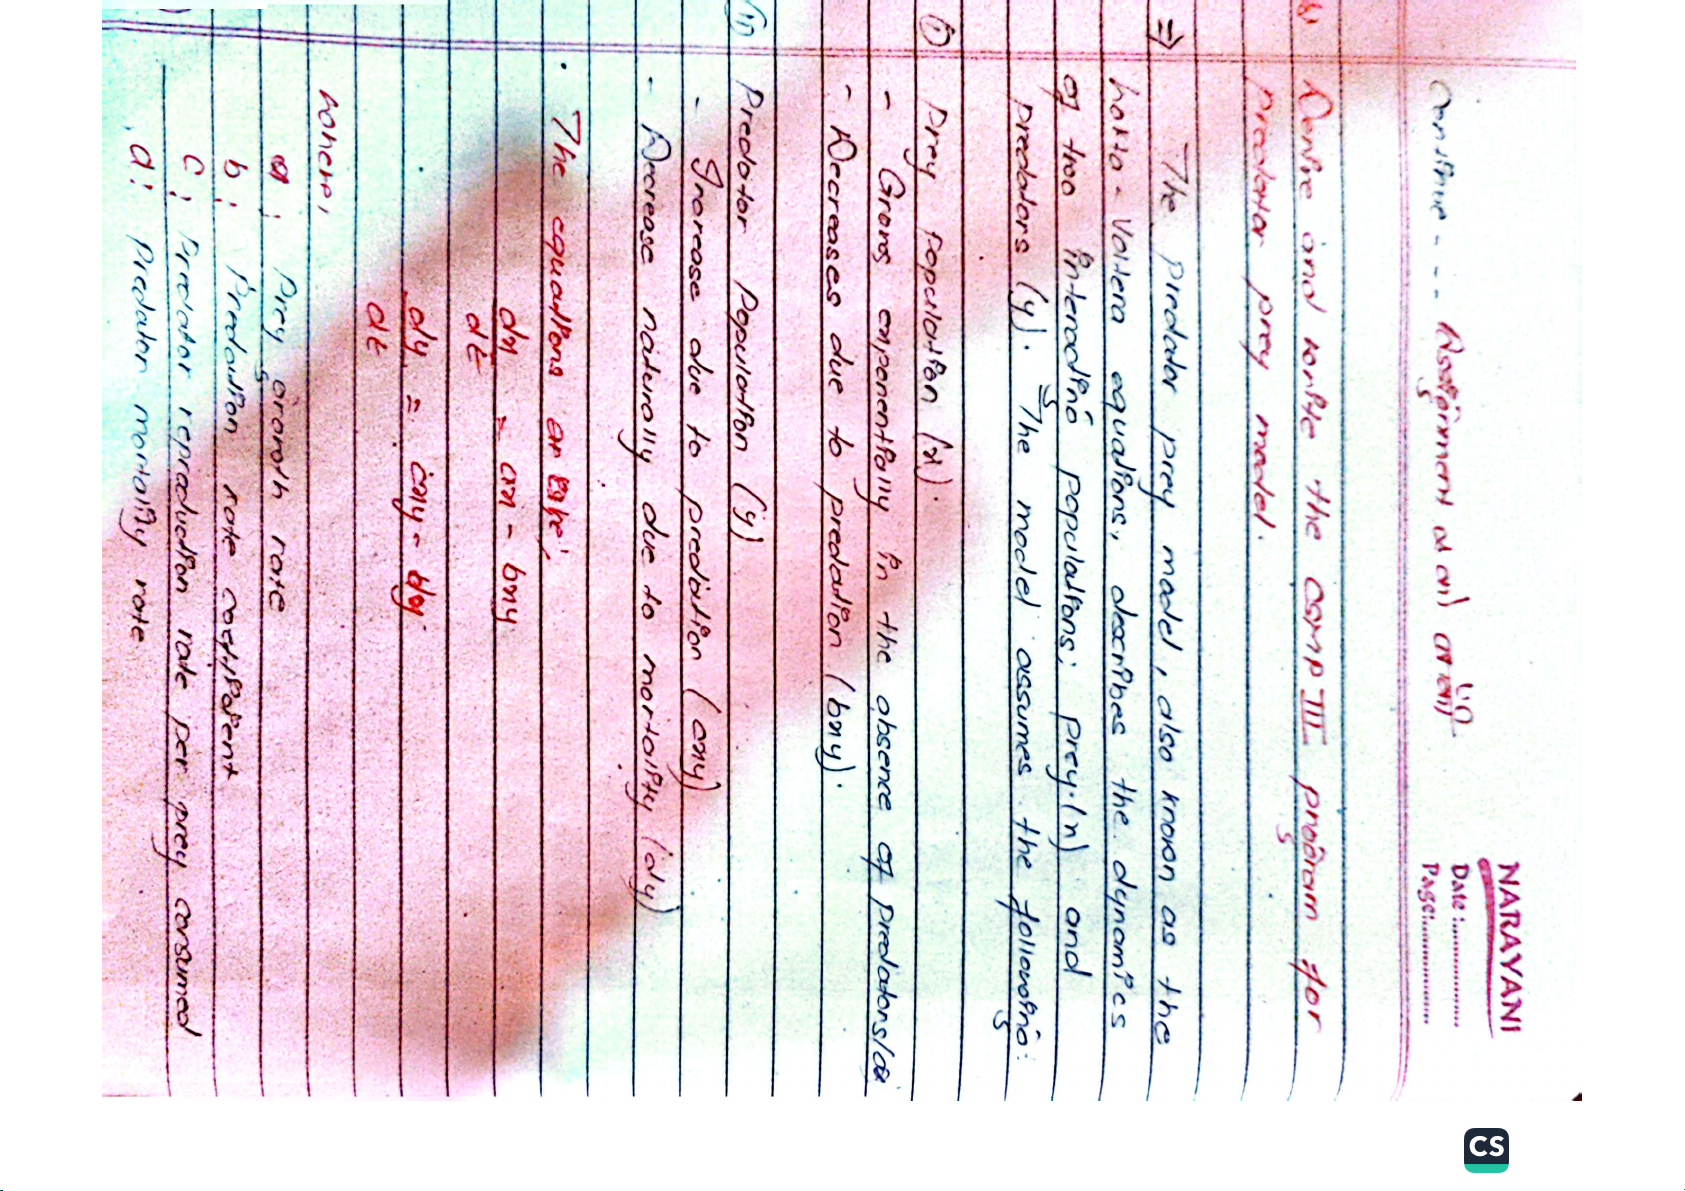 NARAYANI
Date:
Page:
Continue - - - Assignment
Define and write the CSMP III program for
predator prey model.
⇒ The predator prey model, also known as the
Lotka-Volterra equations, describes the dynamics
of two interacting populations; prey (x) and
predators (y). The model assumes the following:
(i) Prey Population (x).
- Grows exponentially in the absence of predators
- Decreases due to predation (bxy).
(ii) Predator Population (y)
- Increase due to predation (cxy)
- Decrease naturally due to mortality (dy)
. The equations are,
dx/dt = ax - bxy
dy/dt = cxy - dy
where,
a: Prey growth rate
b: Predation rate coefficient
c: Predator reproduction rate per prey consumed
d: Predator mortality rate
CS